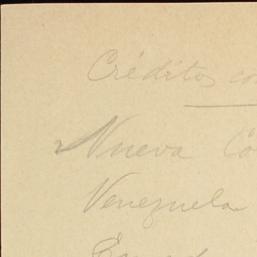 Créditos co
Nueva Co
Venezuela